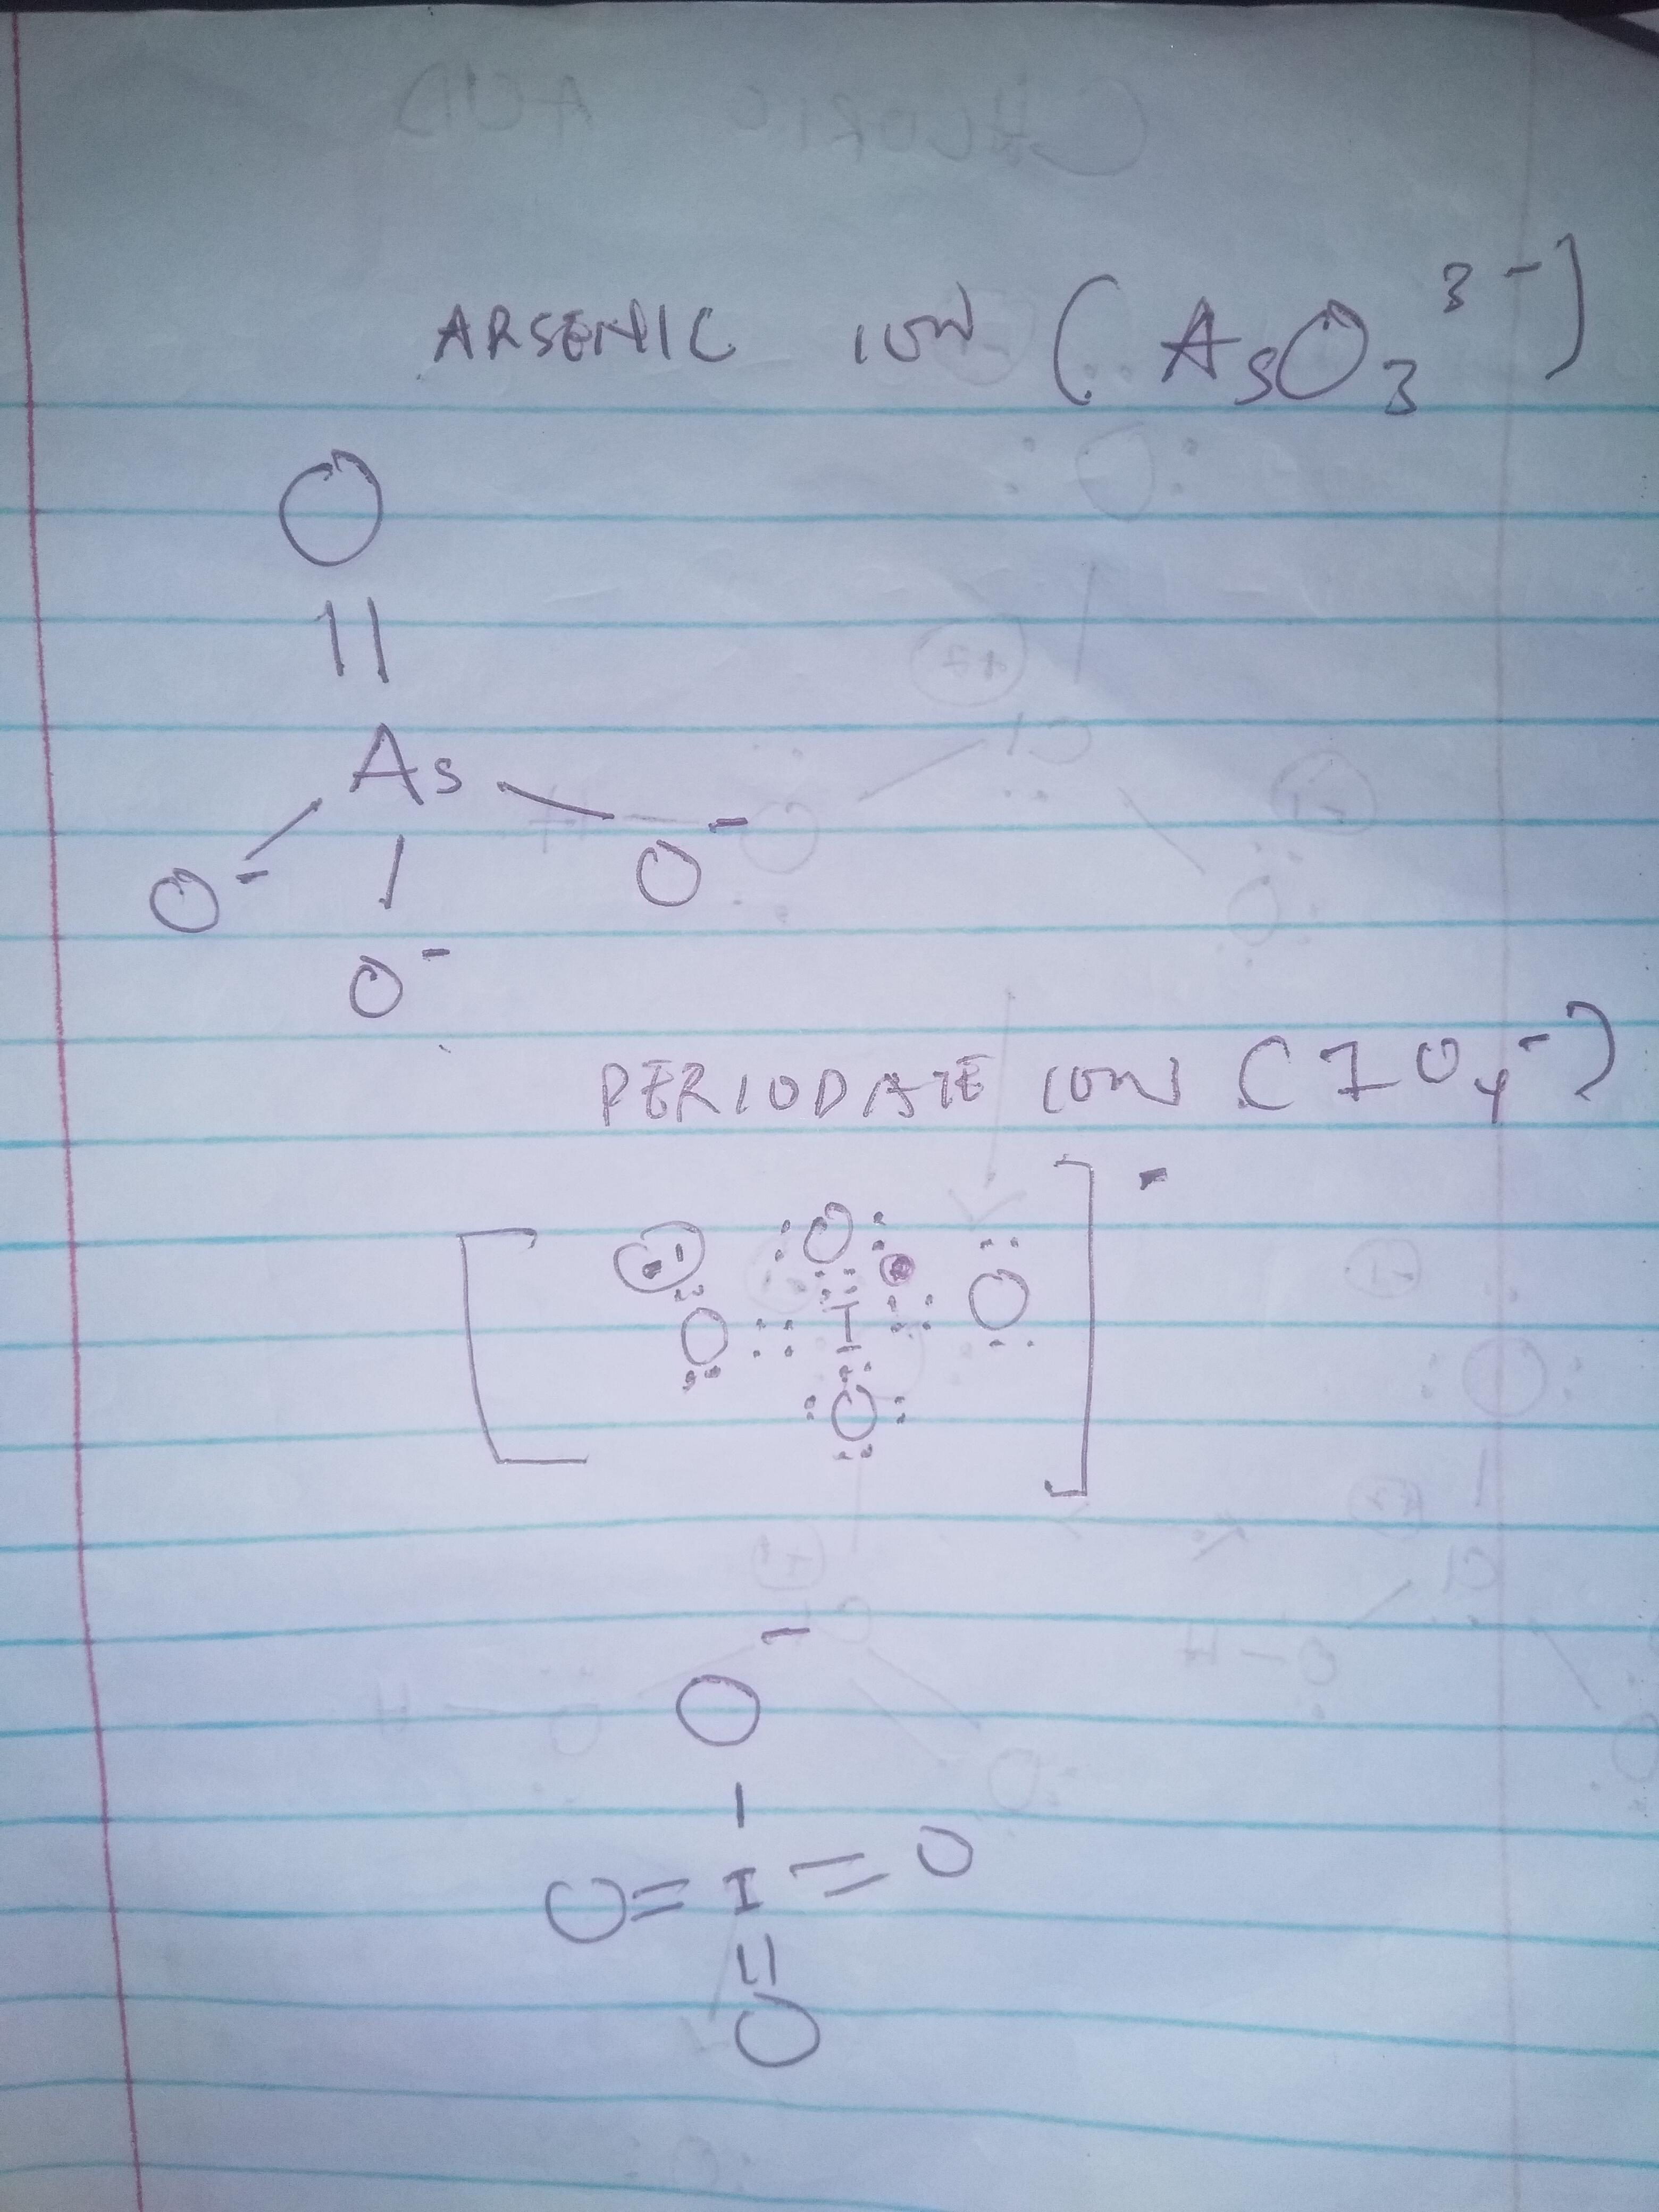 ARSENIC ION (AsO₃³⁻)
O
||
As
O⁻ O⁻
O⁻
PERIODATE ION (IO₄⁻)
[ -1 O O O I O ]⁻
O⁻
|
O = I = O
||
O